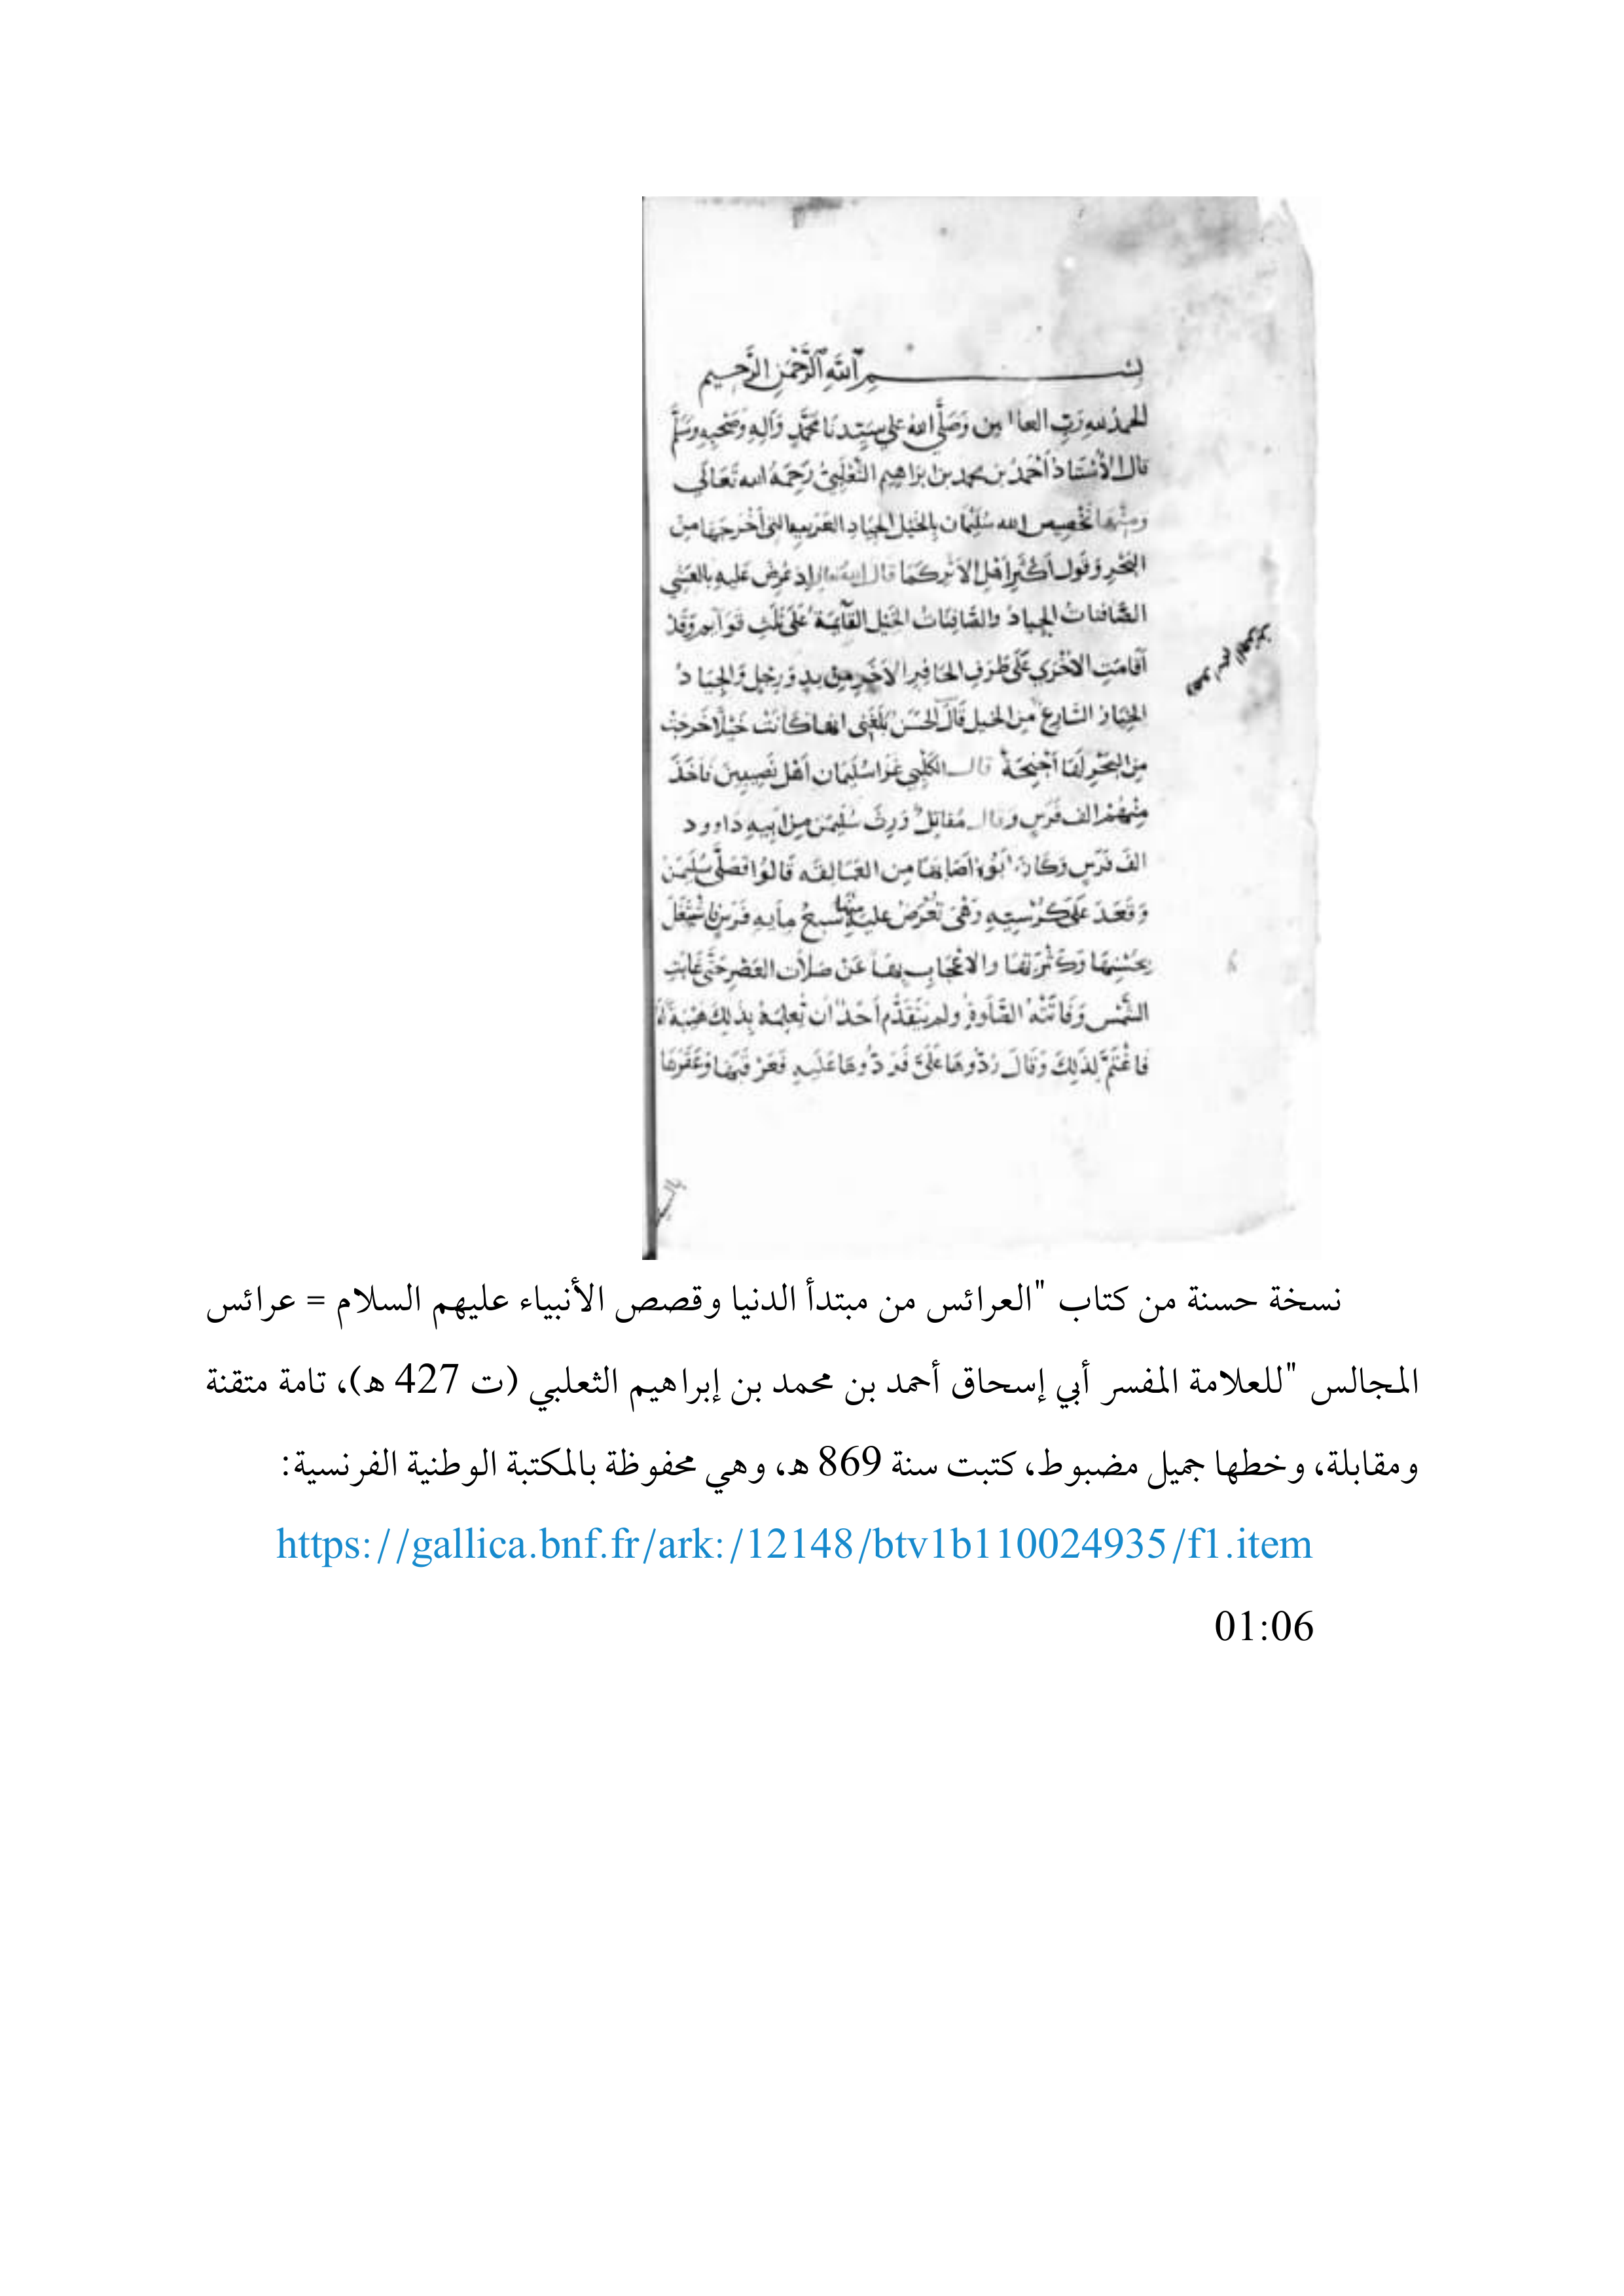 بسم الله الرحمن الرحيم
الحمد لله رب العالمين وصلى الله على سيدنا محمد وآله وصحبه وسلم
قال الأستاذ أحمد بن محمد بن إبراهيم الثعلبي رحمه الله تعالى
ومنها تخصيص الله سليمان بالخيل الجياد العربية التي أخرجها من
البحر وقول أكثر أهل الأثر كما قال الله تعالى إذ عرض عليه بالعشي
الصافنات الجياد والصافنات الخيل القائمة على ثلث قوايم وقد
أقامت الأخرى على طرف الحافر الآخر من يد ورجل والجياد
الخيار السارع من الخيل قال الحسن بلغني انها كانت خيلا خرجت
من البحر لها أجنحة قال الكلبي غزا سليمان أهل نصيبين فأخذ
منهم الف فرس وقال مقاتل ورث سليمن من ابيه داوود
الف فرس وكان أبوه أصابها من العمالقه قالوا فصلى سليمن
وقعد على كرسيه وهي تعرض عليه منها سبع مايه فرس فاشتغل
بحسنها وكثرتها والاعجاب بها عن صلاة العصر حتى غابت
الشمس وفاتته الصلوة ولم يتقدم أحد ان يعلمه بذلك هيبة له
فاغتم لذلك وقال ردوها علي فردوها عليه فعرقبها وعقرها
نسخة حسنة من كتاب "العرائس من مبتدأ الدنيا وقصص الأنبياء عليهم السلام = عرائس
المجالس "للعلامة المفسر أبي إسحاق أحمد بن محمد بن إبراهيم الثعلبي (ت 427 هـ)، تامة متقنة
ومقابلة، وخطها جميل مضبوط، كتبت سنة 869 هـ، وهي محفوظة بالمكتبة الوطنية الفرنسية:
https://gallica.bnf.fr/ark:/12148/btv1b110024935/f1.item
01:06